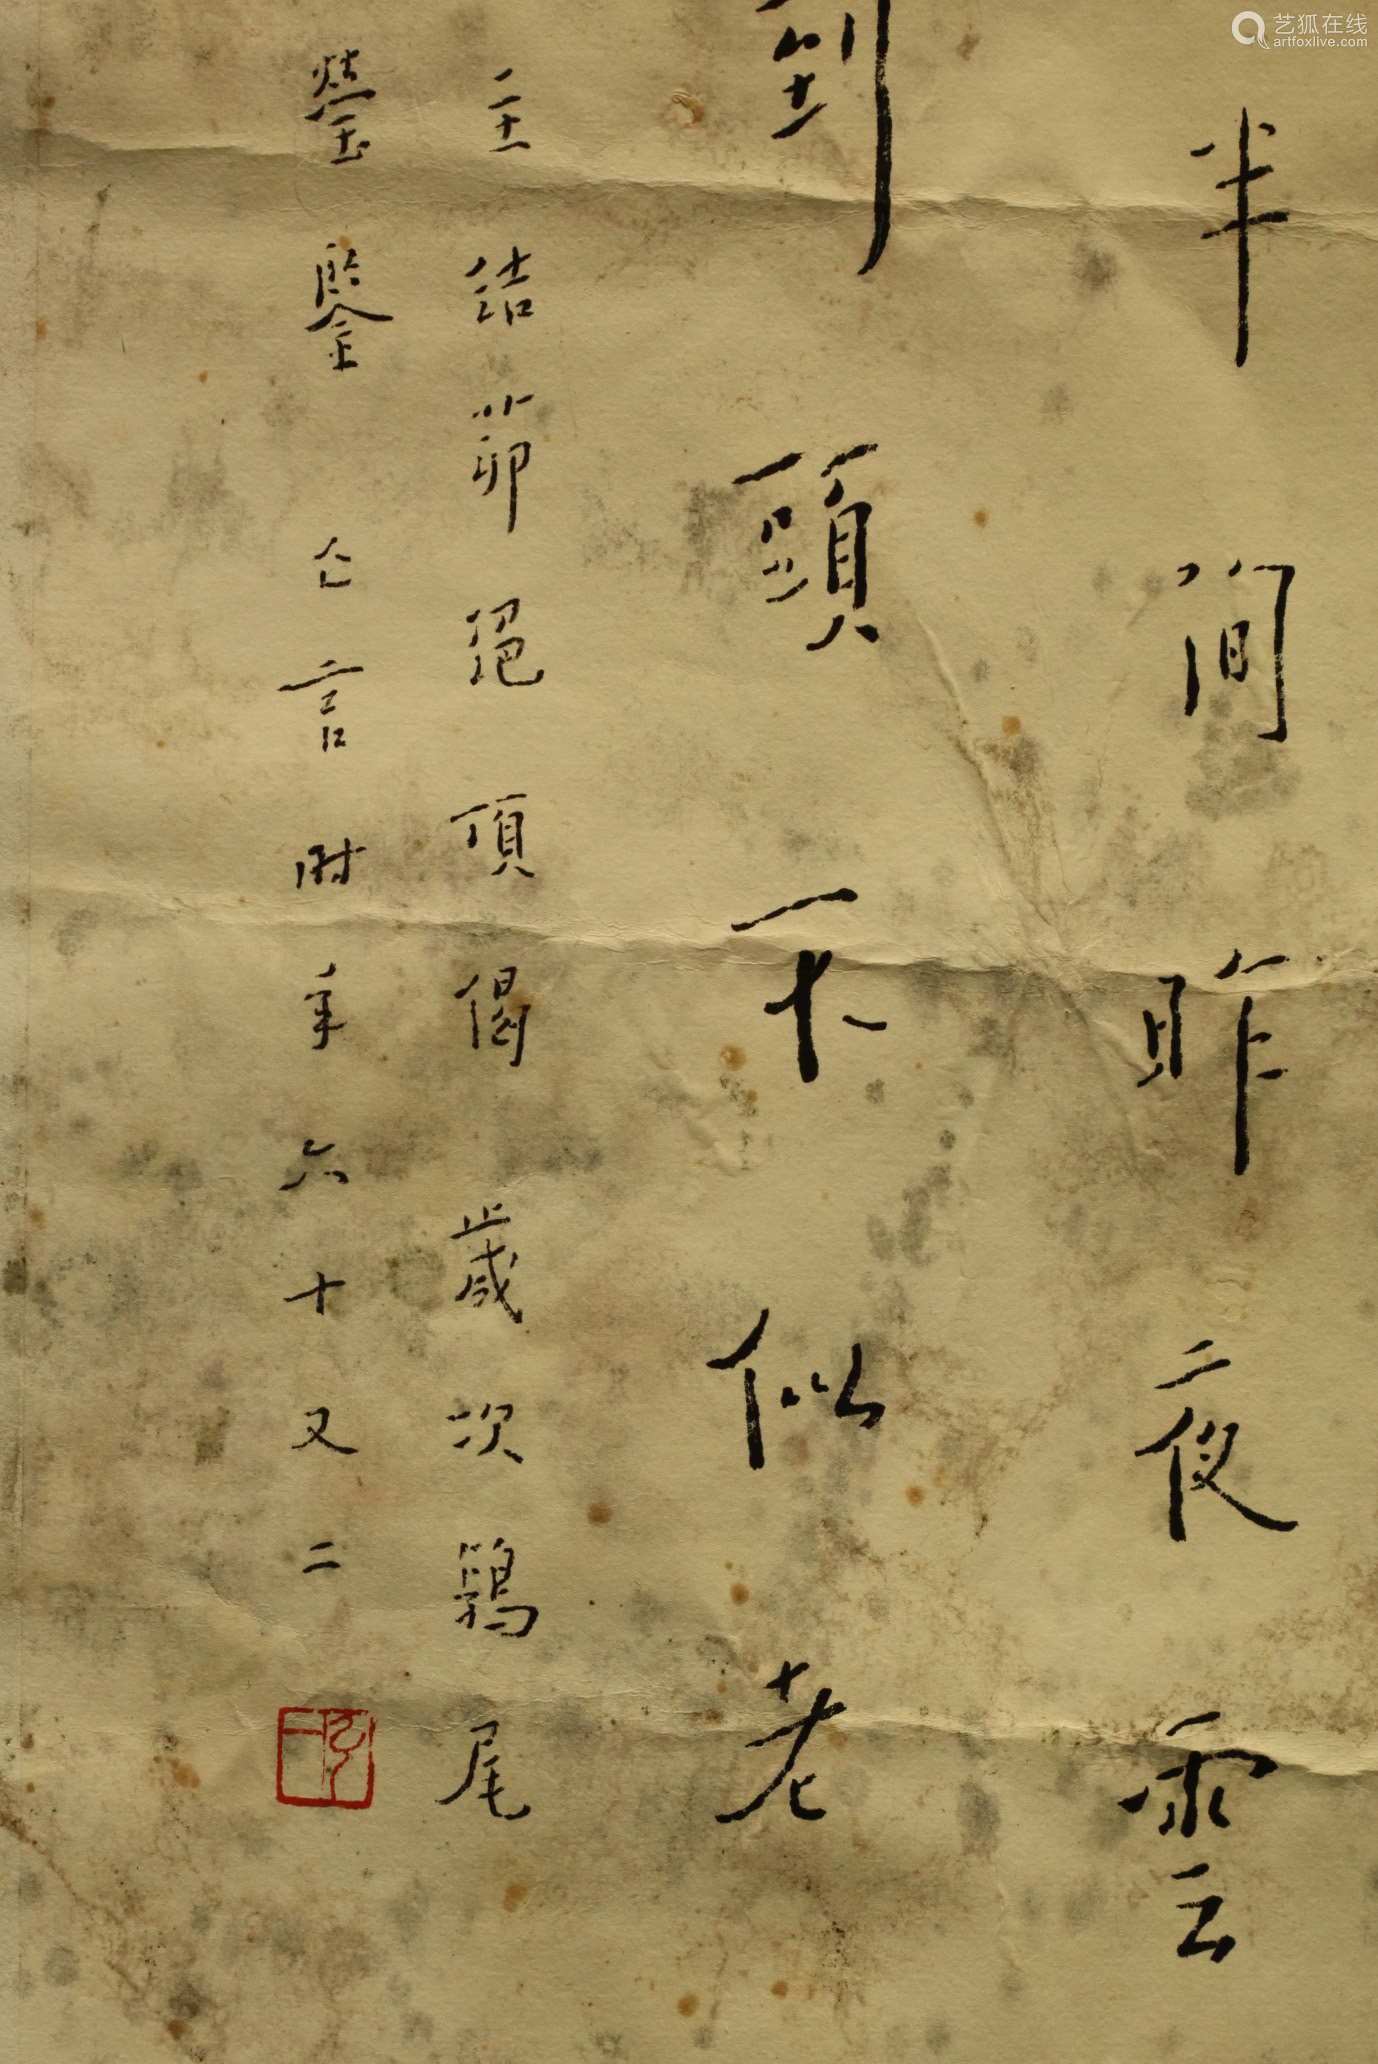 艺狐在线
artfoxlive.com
半間昨夜雲
到頭不似老
主結茆絕頂偈歲次鶉尾
瑩鑒仁言時年六十又二